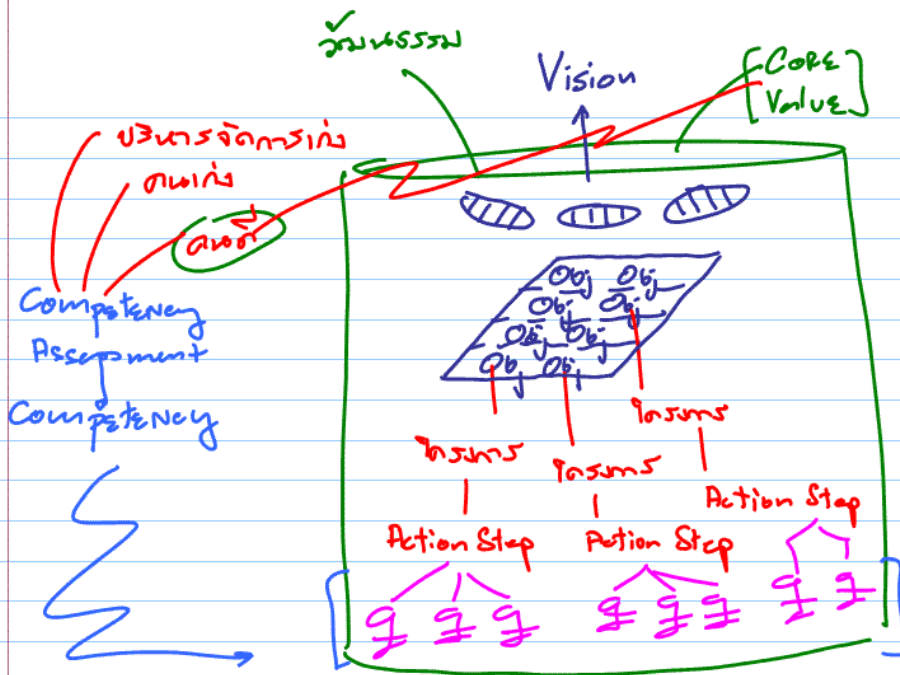 วัฒนธรรม
Vision
[Core
Value]
บริหารจัดการเก่ง
คนเก่ง
คนดี
Competency
Assessment
Competency
Obj Obj
Obj Obj
Obj Obj
Obj Obj
โครงการ
โครงการ
โครงการ
Action Step
Action Step
Action Step